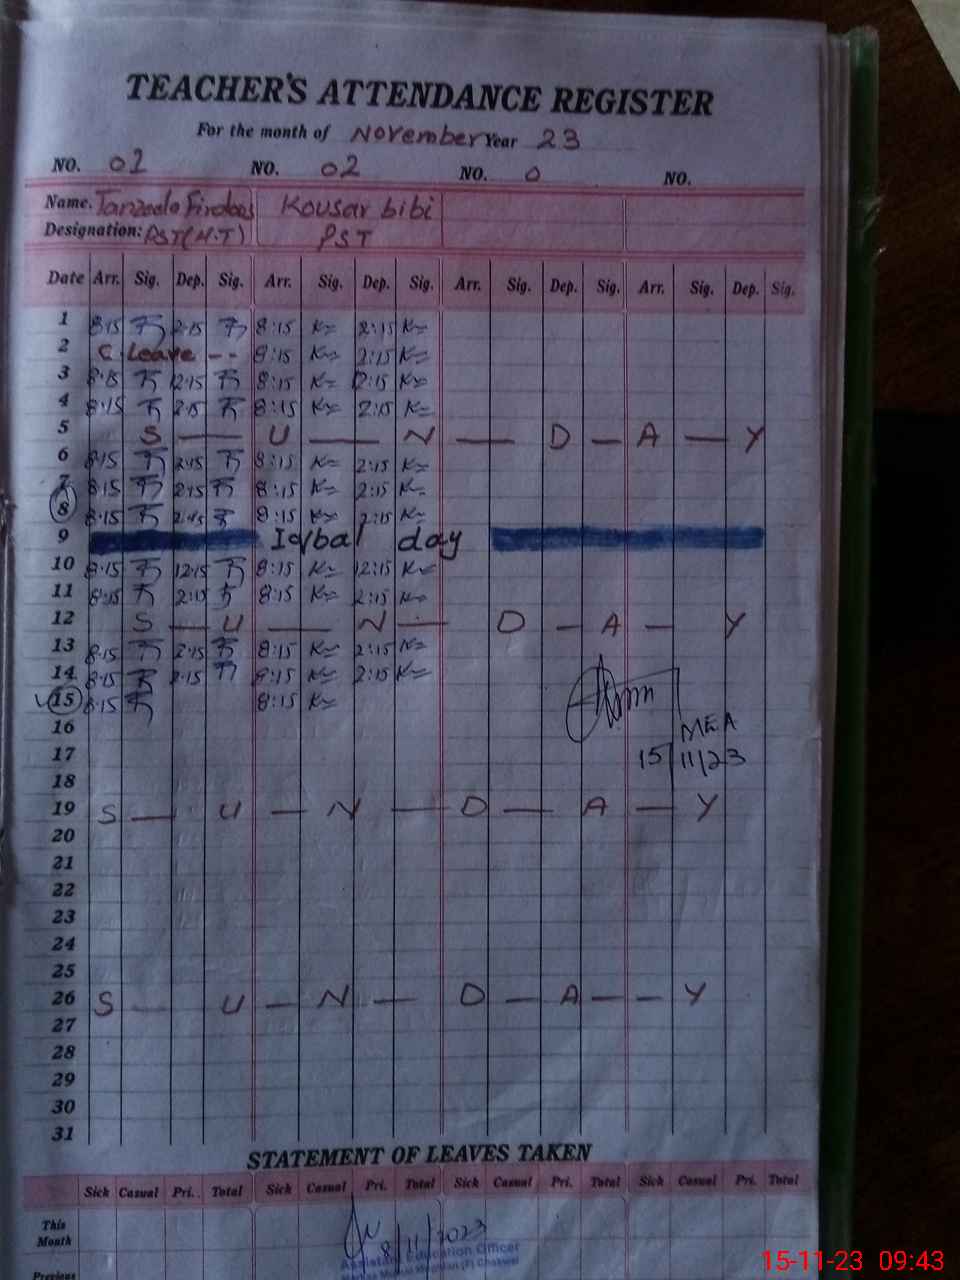 TEACHER'S ATTENDANCE REGISTER
For the month of November Year 23
NO. 01 NO. 02 NO. 0 NO.
Name. Kousar bibi
Designation: PST(H.T) PST
Date Arr. Sig. Dep. Sig. Arr. Sig. Dep. Sig. Arr. Sig. Dep. Sig. Arr. Sig. Dep. Sig.
1 8:15 2:15 8:15 2:15
2 C. Leave -- 8:15 2:15
3 8:15 12:15 8:15 12:15
4 8:15 2:15 8:15 2:15
5 S — U — N — D — A — Y
6 8:15 2:15 8:15 2:15
7 8:15 2:15 8:15 2:15
8 8:15 2:15 8:15 2:15
9 Iqbal day
10 8:15 12:15 8:15 12:15
11 8:15 2:15 8:15 2:15
12 S — U — N — D — A — Y
13 8:15 2:15 8:15 2:15
14 8:15 2:15 8:15 2:15
15 8:15 8:15
16 MEA
17 15/11/23
18
19 S — U — N — D — A — Y
20
21
22
23
24
25
26 S — U — N — D — A — — Y
27
28
29
30
31
STATEMENT OF LEAVES TAKEN
Sick Casual Pri. Total Sick Casual Pri. Total Sick Casual Pri. Total Sick Casual Pri. Total
This
Month
8/11/2023
Assistant Education Officer
Previous
15-11-23 09:43